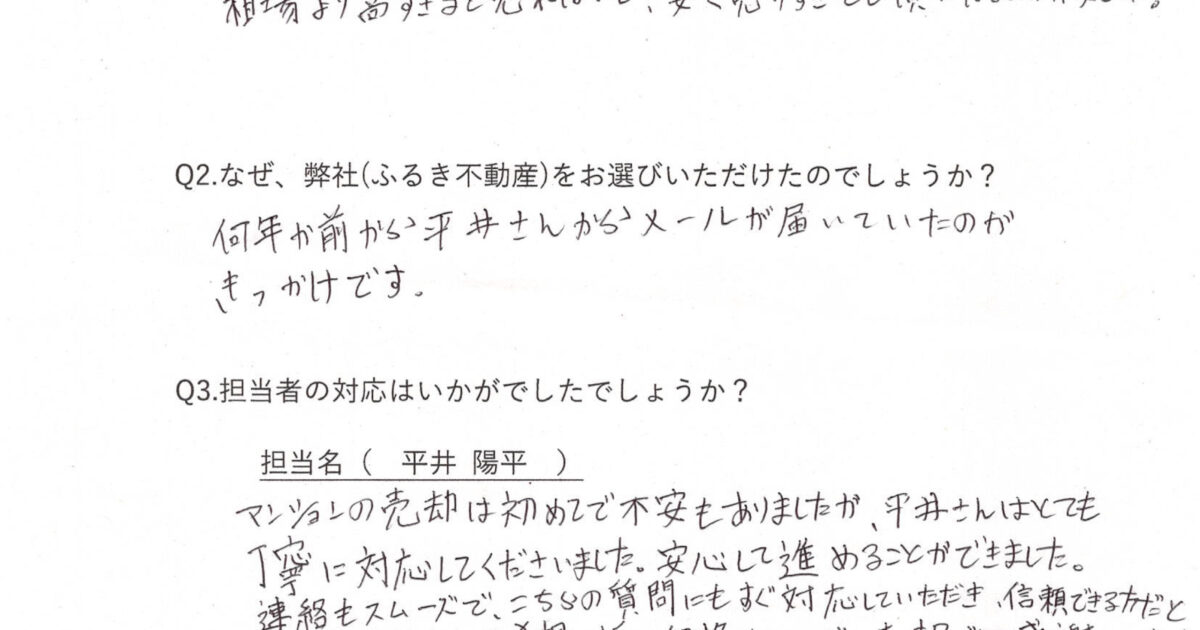 相場より高すぎると売れないし、安く売りすぎることも
Q2.なぜ、弊社(ふるき不動産)をお選びいただけたのでしょうか？
何年か前から平井さんからメールが届いていたのが
きっかけです.
Q3.担当者の対応はいかがでしたでしょうか？
担当名（ 平井 陽平 ）
マンションの売却は初めてで不安もありましたが、平井さんはとても
丁寧に対応してくださいました。安心して進めることができました。
連絡もスムーズで、こちらの質問にもすぐ対応していただき、信頼できる方だと